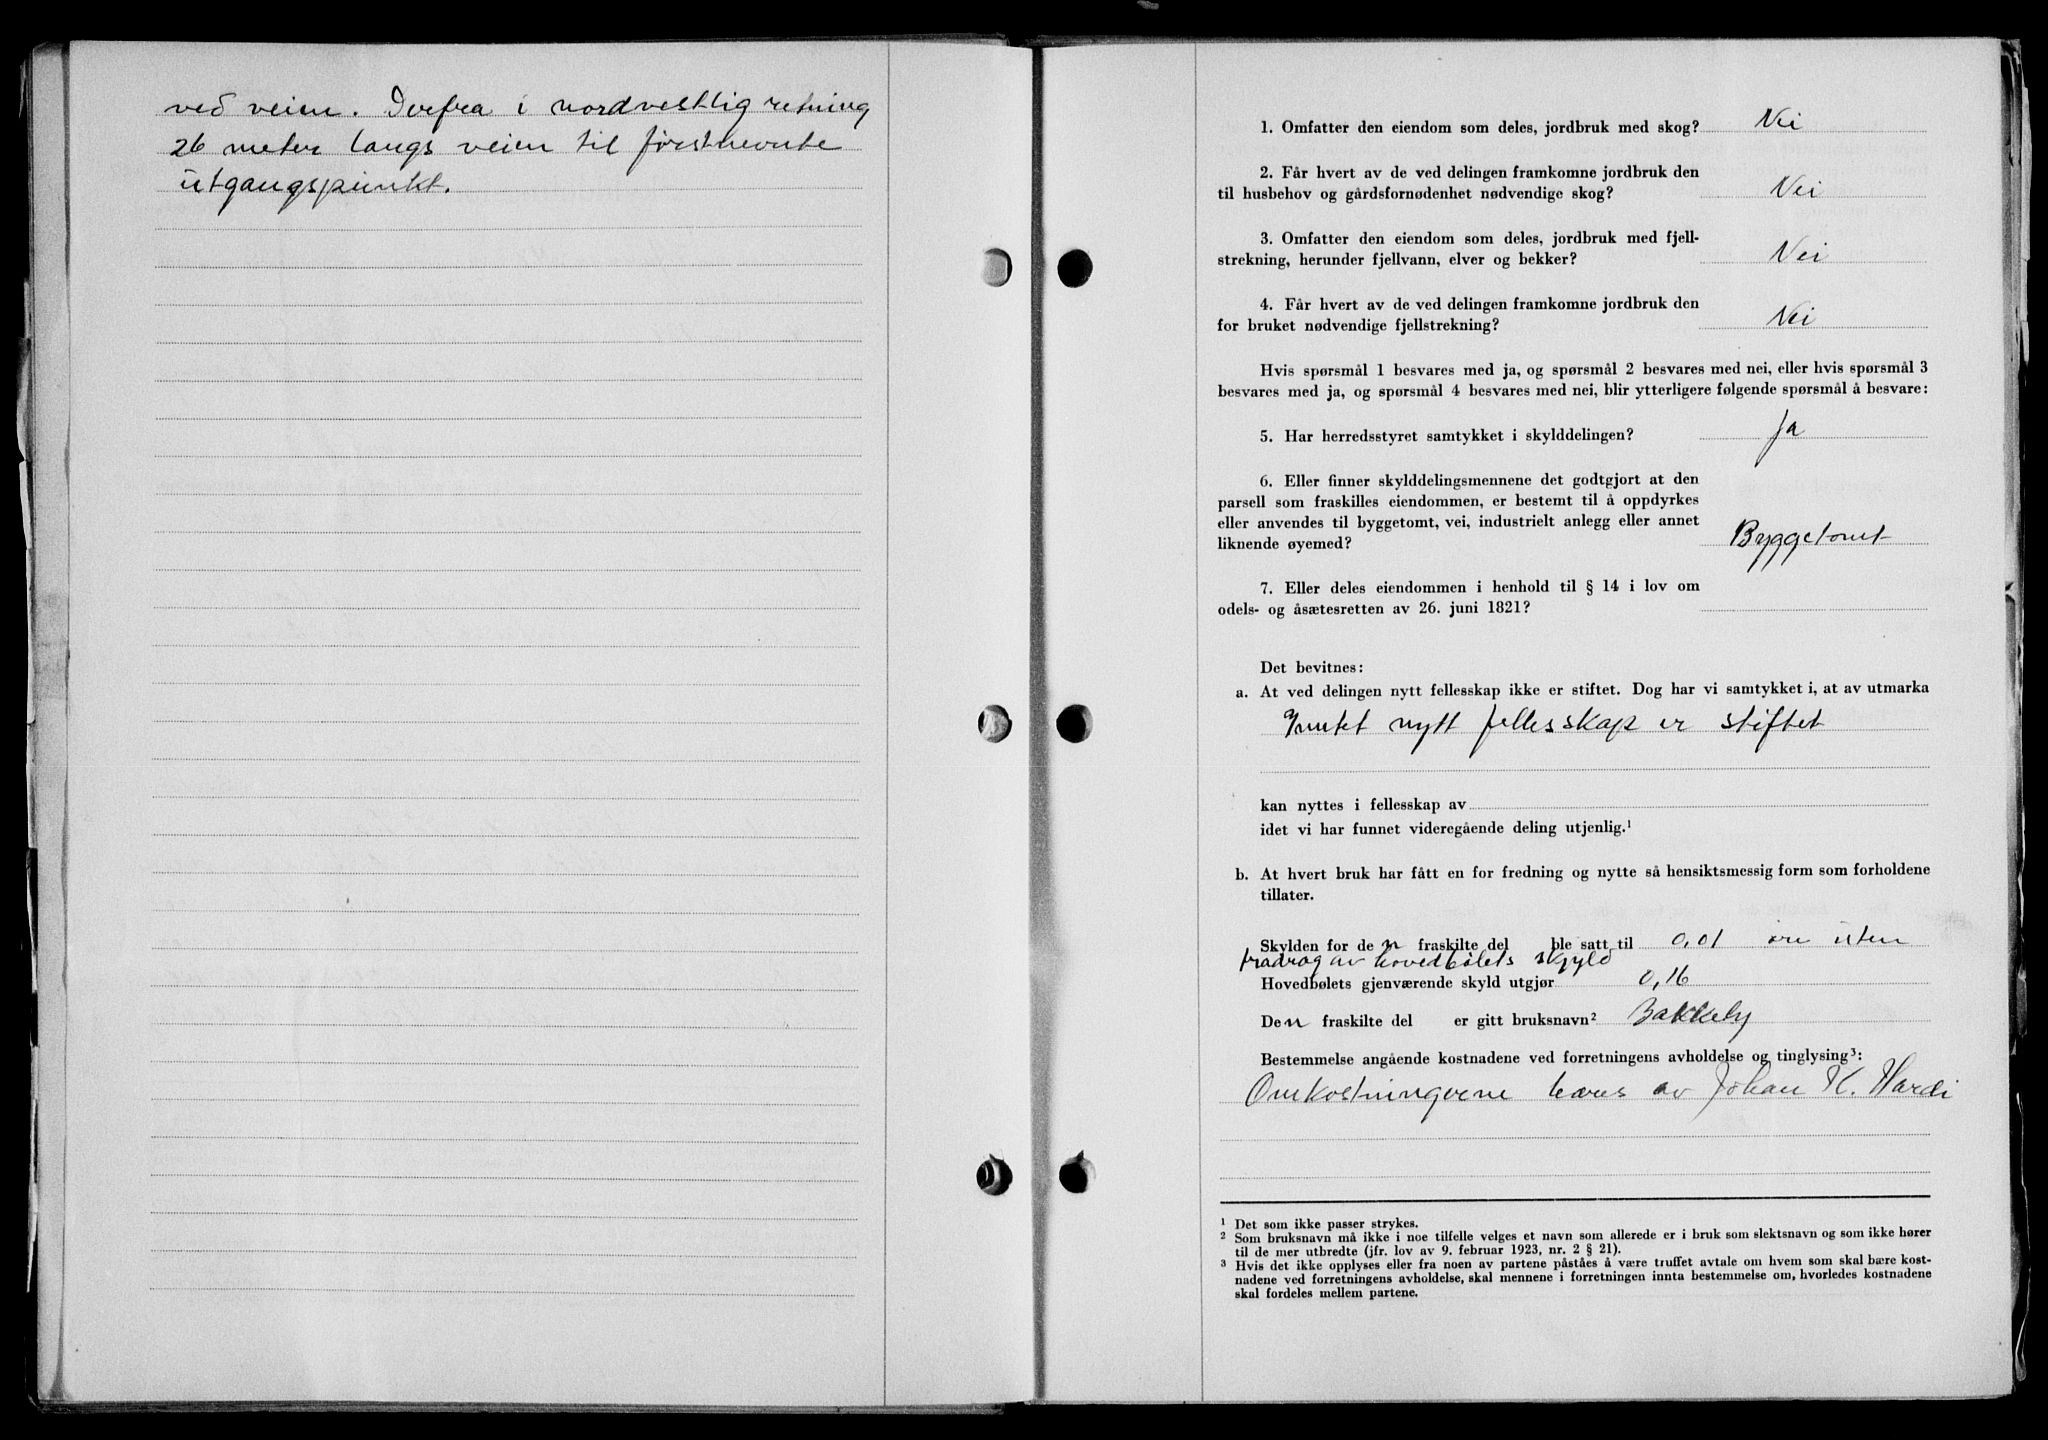 ved veien. Derfra i nordvestlig retning
26 meter langs veien til førstnevnte
utgangspunkt.
1. Omfatter den eiendom som deles, jordbruk med skog? Nei
2. Får hvert av de ved delingen framkomne jordbruk den
til husbehov og gårdsfornødenhet nødvendige skog? Nei
3. Omfatter den eiendom som deles, jordbruk med fjell-
strekning, herunder fjellvann, elver og bekker? Nei
4. Får hvert av de ved delingen framkomne jordbruk den
for bruket nødvendige fjellstrekning? Nei
Hvis spørsmål 1 besvares med ja, og spørsmål 2 besvares med nei, eller hvis spørsmål 3
besvares med ja, og spørsmål 4 besvares med nei, blir ytterligere følgende spørsmål å besvare:
5. Har herredsstyret samtykket i skylddelingen? Ja
6. Eller finner skylddelingsmennene det godtgjort at den
parsell som fraskilles eiendommen, er bestemt til å oppdyrkes
eller anvendes til byggetomt, vei, industrielt anlegg eller annet
liknende øyemed? Byggetomt
7. Eller deles eiendommen i henhold til § 14 i lov om
odels- og åsætesretten av 26. juni 1821?
Det bevitnes:
a. At ved delingen nytt fellesskap ikke er stiftet. Dog har vi samtykket i, at av utmarka
Intet nytt fellesskap er stiftet
kan nyttes i fellesskap av
idet vi har funnet videregående deling utjenlig.¹
b. At hvert bruk har fått en for fredning og nytte så hensiktsmessig form som forholdene
tillater.
Skylden for de n fraskilte del ble satt til 0,01 øre uten
fradrag av hovedbølets skyld
Hovedbølets gjenværende skyld utgjør 0,16
Den fraskilte del er gitt bruksnavn² Bakkeby
Bestemmelse angående kostnadene ved forretningens avholdelse og tinglysing³:
Omkostningerne bæres av Johan K. Hardi
¹ Det som ikke passer strykes.
² Som bruksnavn må ikke i noe tilfelle velges et navn som allerede er i bruk som slektsnavn og som ikke hører
til de mer utbredte (jfr. lov av 9. februar 1923, nr. 2 § 21).
³ Hvis det ikke opplyses eller fra noen av partene påståes å være truffet avtale om hvem som skal bære kost-
nadene ved forretningens avholdelse, skal mennene i forretningen innta bestemmelse om, hvorledes kostnadene
skal fordeles mellem partene.